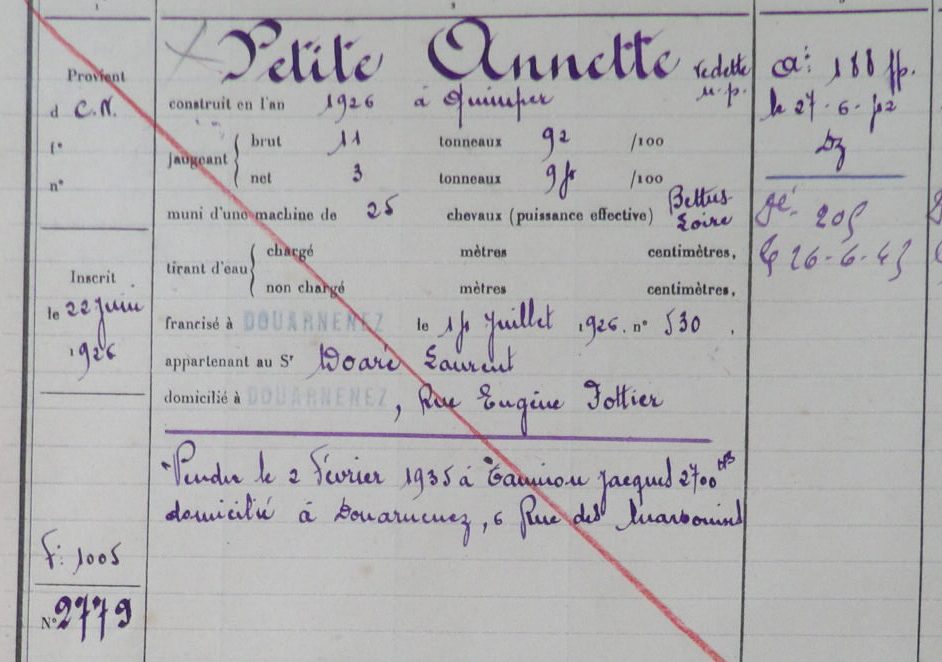 Provient
d C.N.
f°
n°
Inscrit
le 22 Juin
1926
F: 1005
N° 2779
Petite Annette vedette
m.p.
construit en l'an 1926 à Quimper
jaugeant brut 11 tonneaux 92 /100
net 3 tonneaux /100
muni d'une machine de 25 chevaux (puissance effective) Bettus-
Loire
tirant d'eau chargé mètres centimètres,
non chargé mètres centimètres,
francisé à DOUARNENEZ le Juillet 1926. n° 530.
appartenant au Sr Doaré Laurent
domicilié à DOUARNENEZ, Rue Eugène Pottier
Vendu le 2 Février 1935 à Jacques 2700
domicilié à Douarnenez, 6 Rue des
a:
le 27-6-
205
26-6-43